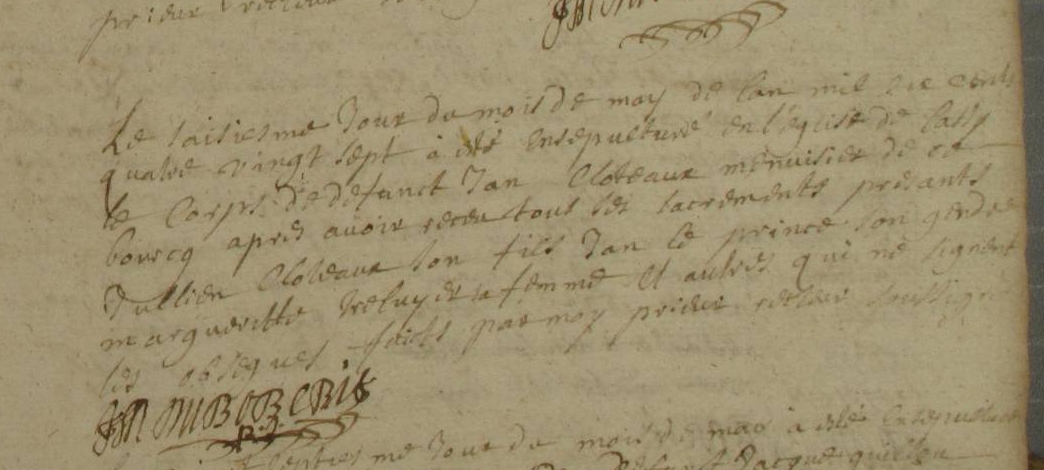 prieur recteur
Le saisiesme Jour du mois de may de lan mil six cents
quatre vingt sept à esté ensepulturé en l'église de
le Corps de defunct Jan Cloteaux menuisier de ce
bourcq apres auoir receu tous les sacrements presants
Jullien Cloteaux son fils Jan le prince son gendre
margueritte sa femme et autres qui ne signent
les obseques faits par moy prieur recteur soussigné
Jour du mois de may à esté ensepulturé
defunct Jacque